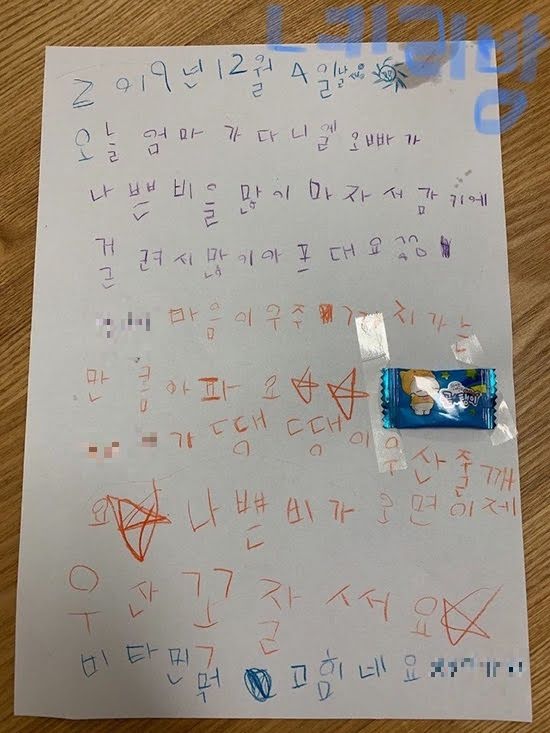 느키리방
2019년 12월 4일 날씨
오늘 엄마가 다니엘 오빠가
나쁜 비를 많이 마자서 감기에
걸려서 많이 아프대요
마음이 우주 까지 가는
만큼 아파요
가 땡땡이 우산 줄깨
요 나쁜 비가 오면 이제
우산 꼬ㄱ 잘 써요
비타민 뭐 고 힘내요